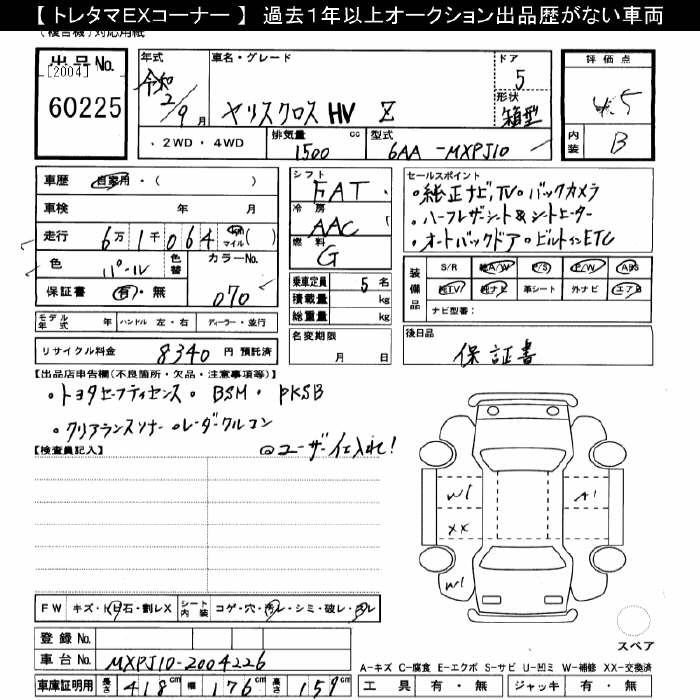 【 トレタマEXコーナー 】 過去1年以上オークション出品歴がない車両
(複合機)対応用紙
出品No.
[2004]
60225
年式
令和
2/9月
車名・グレード
ヤリスクロス HV Z
ドア
5
形状
箱型
評価点
4.5
内装
B
. 2WD . 4WD
排気量 cc
1500
型式
6AA -MXPJ10
車歴 自家用・( )
車検 年 月
走行 6万1千064 km マイル( )
色 パール
色替
カラーNo.
070
保証書 有・無
モデル年式 年
ハンドル 左・右
ディーラー・並行
リサイクル料金 8340 円 預託済
シフト
FAT
冷房
AAC
燃料
G
乗車定員 5 名
積載量 kg
総重量 kg
名変期限
月 日
セールスポイント
・純正ナビ,TV・バックカメラ
・ハーフレザーシート&シートヒーター
・オートバックドア・ビルトインETC
装備品
S/R 純A/W P/S P/W ABS
純TV 純ナビ 革シート 外ナビ エアB
ナビ型番:
後日品
保証書
【出品店申告欄(不良箇所・欠品・注意事項等)】
・トヨタセーフティセンス・BSM・PKSB
・クリアランスソナー・レーダークルコン
◎ユーザー仕入れ!
【検査員記入】
W1
XX
W1
A1
FW キズ・トビ石・割レX
シート内装 コゲ・穴・汚レ・シミ・破レ・スレ
登録No.
車台No. MXPJ10-2004226
車庫証明用 長さ 418cm 幅 176cm 高さ 159cm
スペア
A-キズ C-腐食 E-エクボ S-サビ U-凹ミ W-補修 XX-交換済
工具 有・無 ジャッキ 有・無